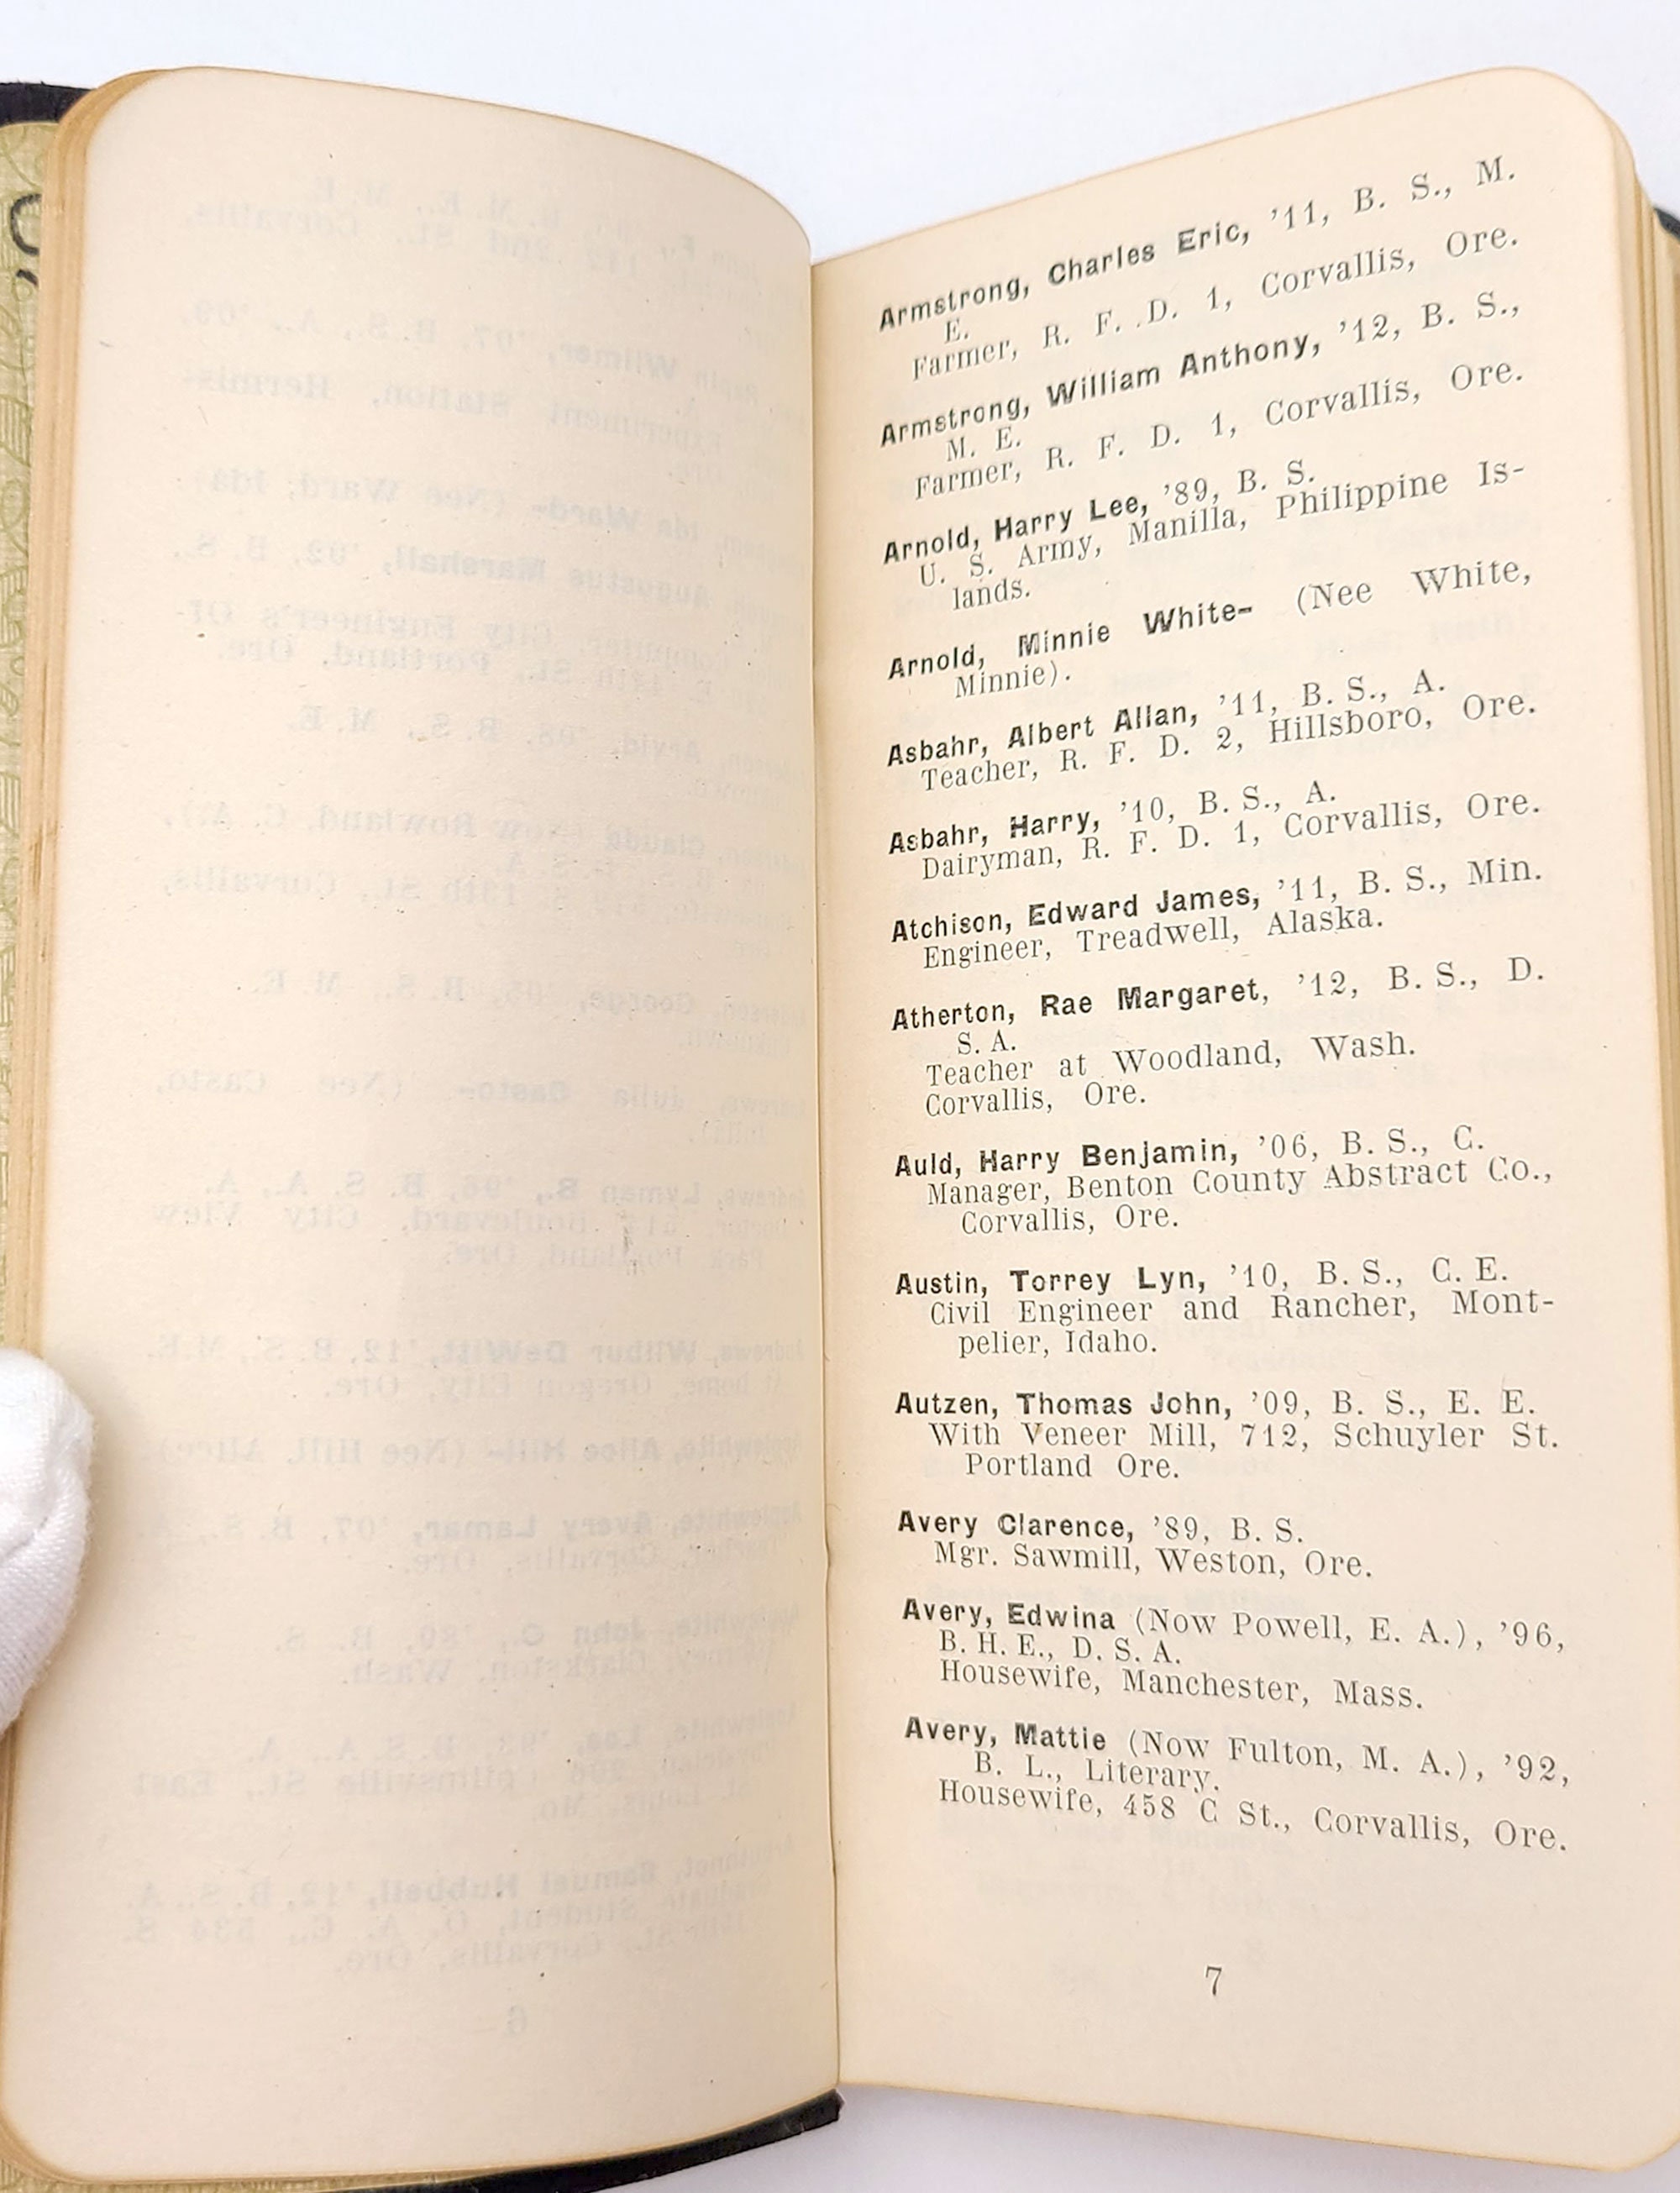 Armstrong, Charles Eric, '11, B. S., M.
E.
Farmer, R. F. D. 1, Corvallis, Ore.
Armstrong, William Anthony, '12, B. S.,
M. E.
Farmer, R. F. D. 1, Corvallis, Ore.
Arnold, Harry Lee, '89, B. S.
U. S. Army, Manilla, Philippine Is-
lands.
Arnold, Minnie White- (Nee White,
Minnie).
Asbahr, Albert Allan, '11, B. S., A.
Teacher, R. F. D. 2, Hillsboro, Ore.
Asbahr, Harry, '10, B. S., A.
Dairyman, R. F. D. 1, Corvallis, Ore.
Atchison, Edward James, '11, B. S., Min.
Engineer, Treadwell, Alaska.
Atherton, Rae Margaret, '12, B. S., D.
S. A.
Teacher at Woodland, Wash.
Corvallis, Ore.
Auld, Harry Benjamin, '06, B. S., C.
Manager, Benton County Abstract Co.,
Corvallis, Ore.
Austin, Torrey Lyn, '10, B. S., C. E.
Civil Engineer and Rancher, Mont-
pelier, Idaho.
Autzen, Thomas John, '09, B. S., E. E.
With Veneer Mill, 712, Schuyler St.
Portland Ore.
Avery Clarence, '89, B. S.
Mgr. Sawmill, Weston, Ore.
Avery, Edwina (Now Powell, E. A.), '96,
B. H. E., D. S. A.
Housewife, Manchester, Mass.
Avery, Mattie (Now Fulton, M. A.), '92,
B. L., Literary.
Housewife, 458 C St., Corvallis, Ore.
7